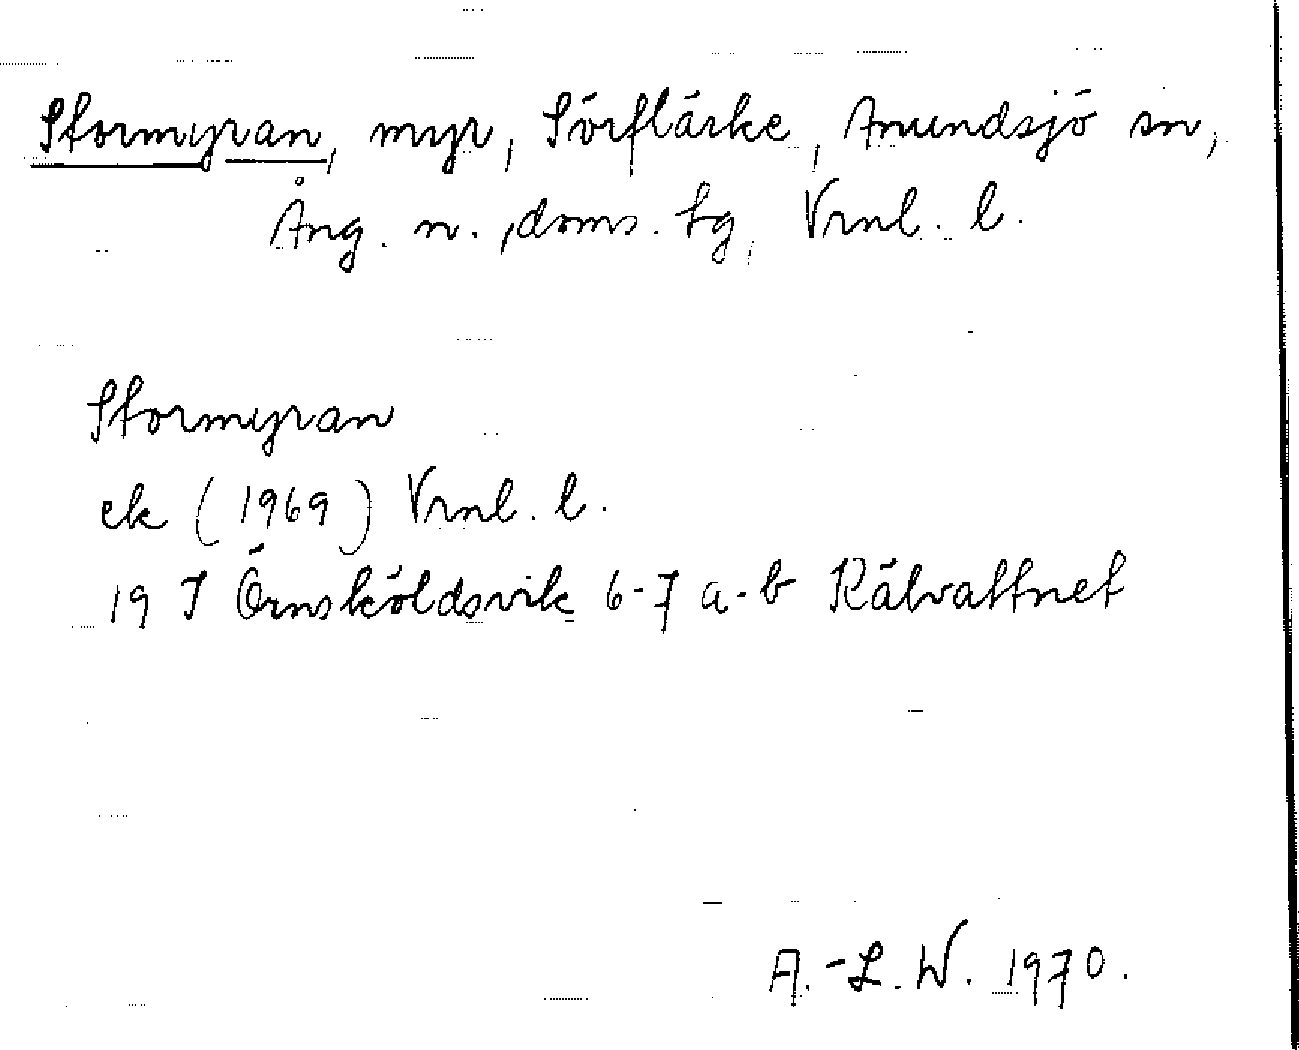 Stormyran, myr, Sörflärke, Anundsjö sn,
Ång. n., doms. tg, Vrnl. l.
Stormyran
ek (1969) Vrnl. l.
19 I Örnsköldsvik 6-7 a-b Kälvattnet
A.-L. W. 1970.